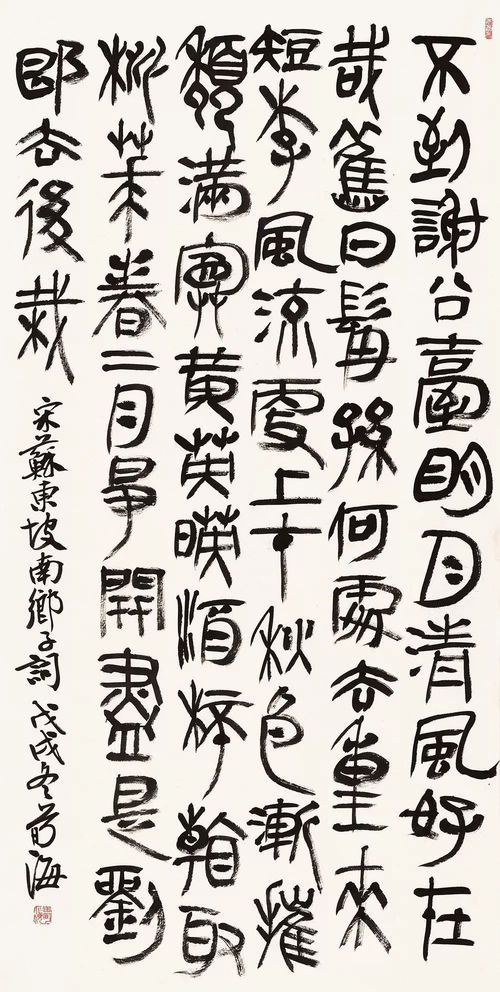 不到謝公臺明月清風好在
哉舊日髯孫何處去重來
短李風流更上才秋色漸摧
頹滿院黃英暎酒桮看取
桃華春二月爭開盡是劉
郎去後栽
宋蘇東坡南鄉子詞 戊戌冬海